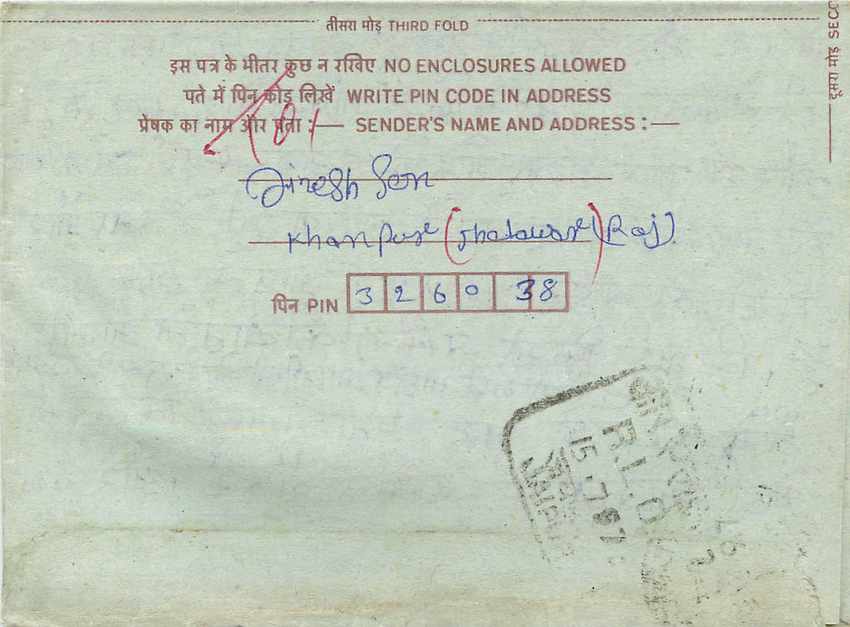 तीसरा मोड़ THIRD FOLD
इस पत्र के भीतर कुछ न रखिए NO ENCLOSURES ALLOWED
पते में पिन कोड लिखें WRITE PIN CODE IN ADDRESS
प्रेषक का नाम और पता :— SENDER'S NAME AND ADDRESS :—
Jinesh Sen
Khanpur (Jhalawar) (Raj).
पिन PIN 3 2 6 0 38
दूसरा मोड़ SECO
R.L.O.
15.7.97